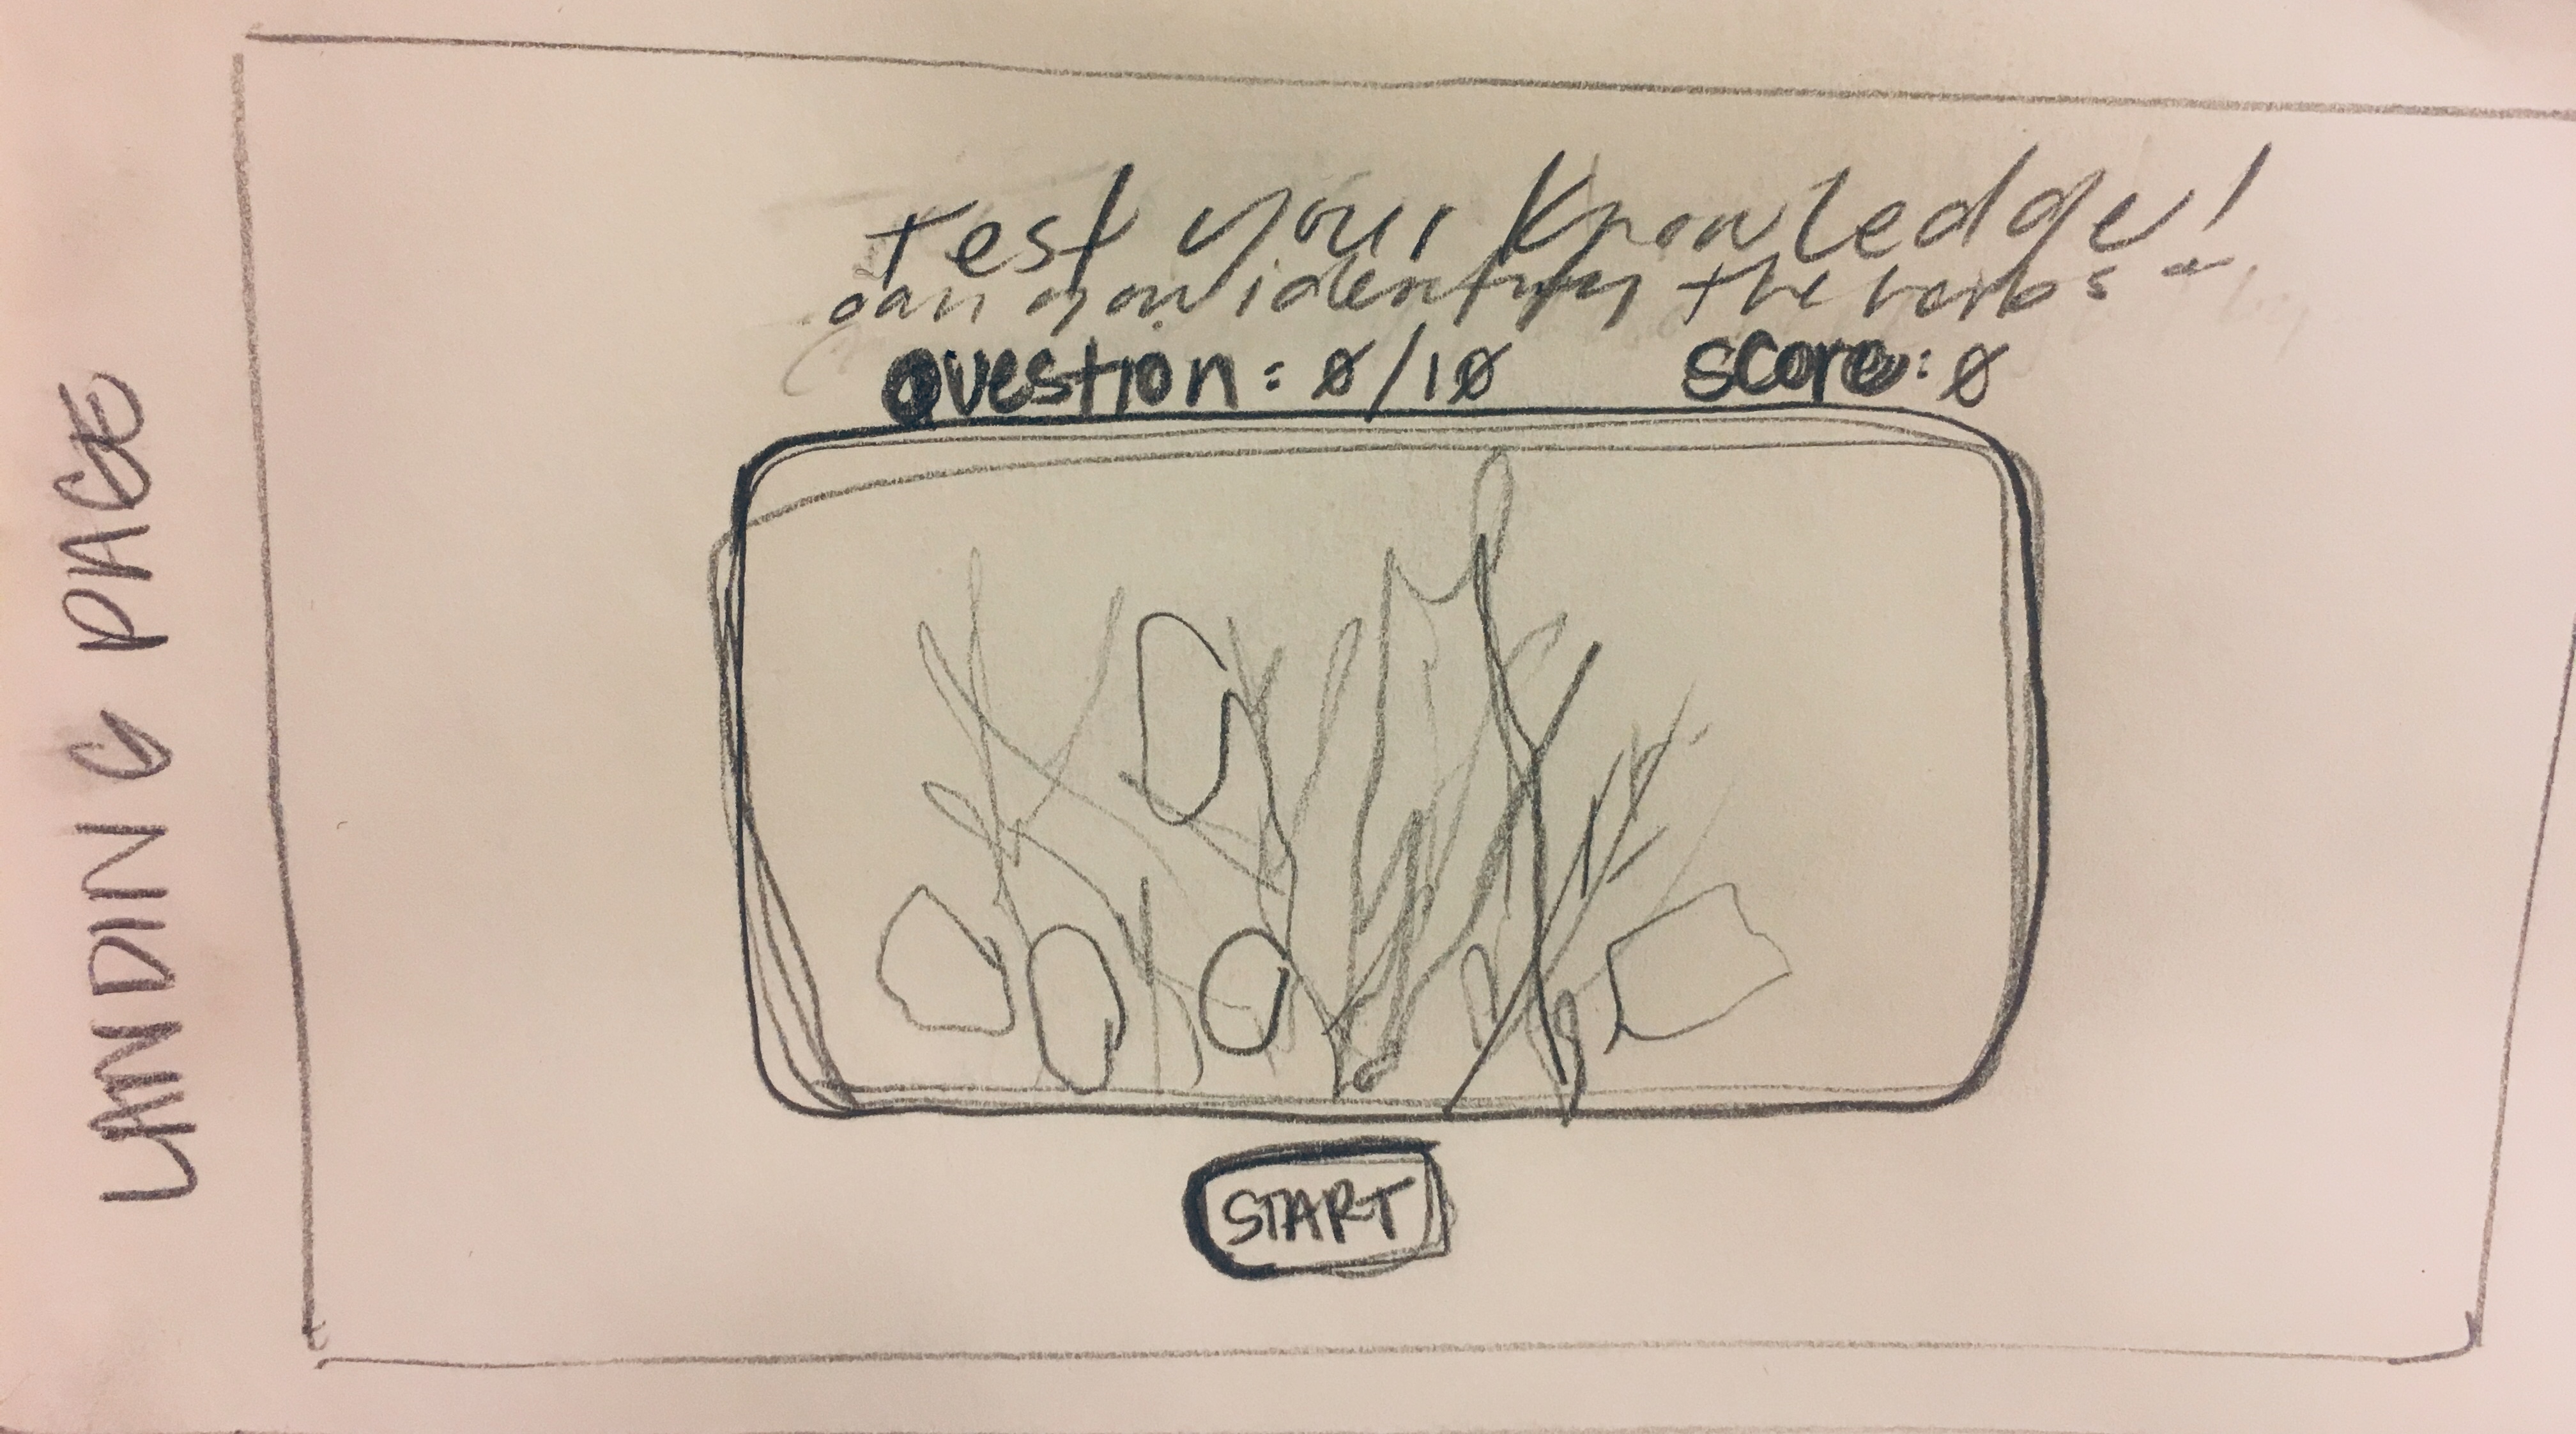 LANDING PAGE
Test your Knowledge!
can you identify the herbs
Question: 0/10 score: 0
START